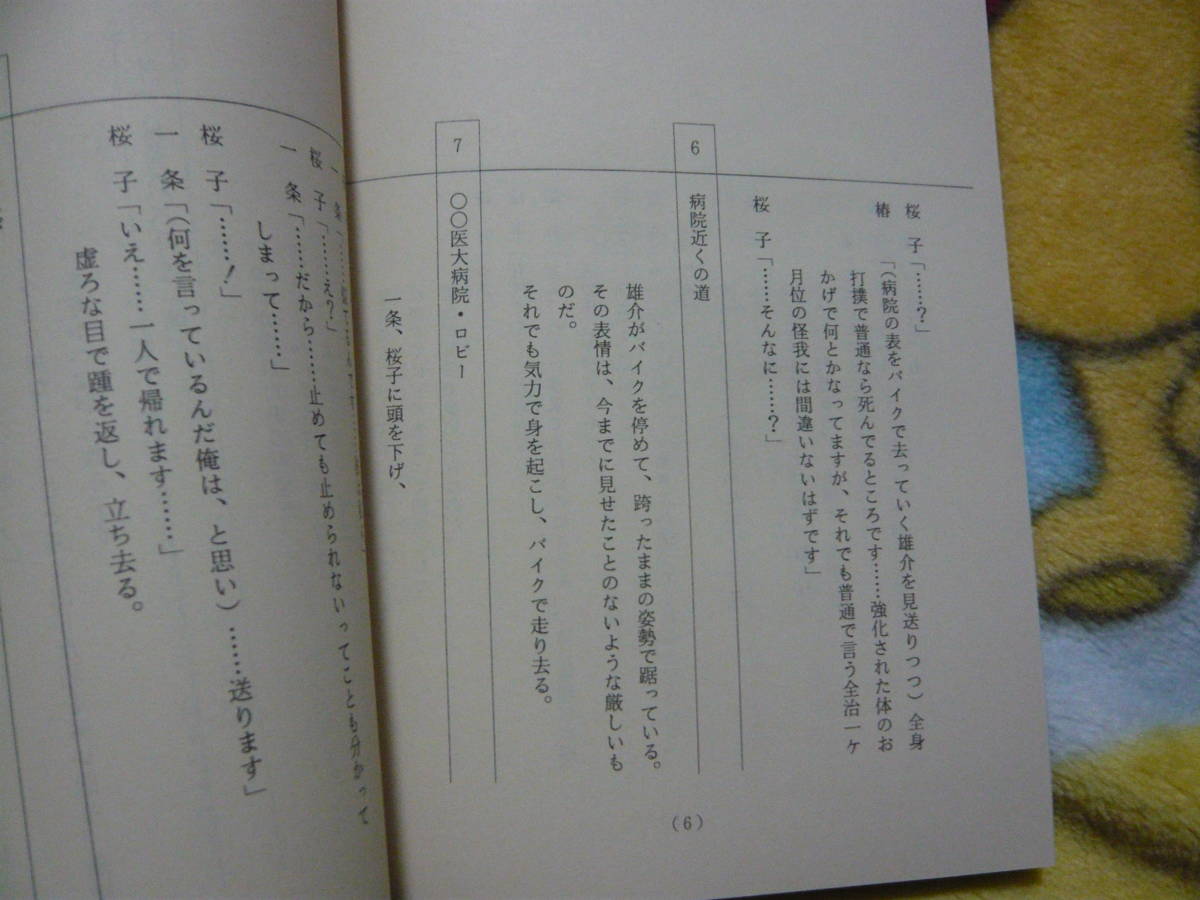 桜 子「……？」
椿 「(病院の表をバイクで去っていく雄介を見送りつつ）全身
打撲で普通なら死んでるところです……強化された体のお
かげで何とかなってますが、それでも普通で言う全治一ケ
月位の怪我には間違いないはずです」
桜 子「……そんなに……？」
6 病院近くの道
雄介がバイクを停めて、跨ったままの姿勢で踞っている。
その表情は、今までに見せたことのないような厳しいも
のだ。
それでも気力で身を起こし、バイクで走り去る。
7 〇〇医大病院・ロビー
一条、桜子に頭を下げ、
(6)
一 条「
桜 子「……え？」
一 条「……だから……止めても止められないってことも分かって
しまって……」
桜 子「……！」
一 条「(何を言っているんだ俺は、と思い）……送ります」
桜 子「いえ……一人で帰れます……」
虚ろな目で踵を返し、立ち去る。